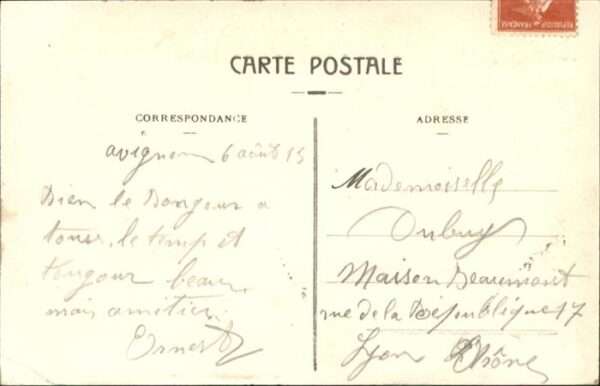 CARTE POSTALE
CORRESPONDANCE
avignon 6 août 15
Bien le Bongour a
tous, le temp et
tougour beau
mais amitier
Ernest
ADRESSE
Mademoiselle
Dubuy
Maison Beaumont
rue de la République 17
Lyon Rhône